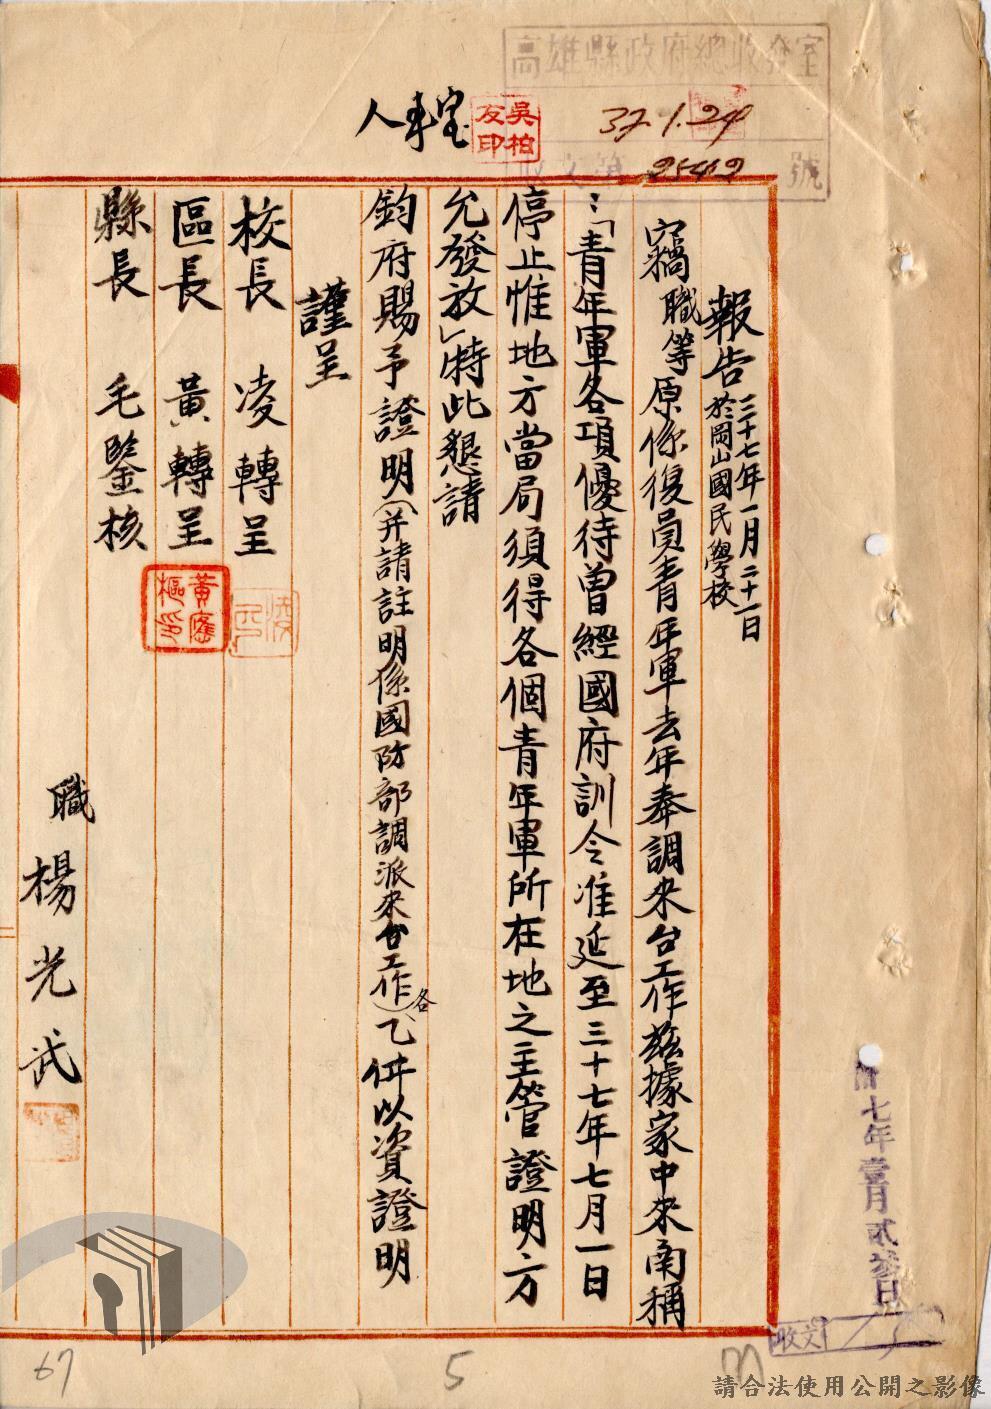 高雄縣政府總收發室
37.1.24
收文第 2542 號
人事室
吳柏友印
報告 三十七年一月二十一日於岡山國民學校
竊職等原係復員青年軍去年奉調來台工作茲據家中來函稱
:「青年軍各項優待曾經國府訓令准延至三十七年七月一日
停止惟地方當局須得各個青年軍所在地之主管證明方
允發放」特此懇請
鈞府賜予證明(并請註明係國防部調派來台工作)各乙件以資證明
謹呈
校長 凌轉呈
區長 黃轉呈
縣長 毛鑒核
職 楊光武
七年壹月貳參日
收文
67
5
請合法使用公開之影像